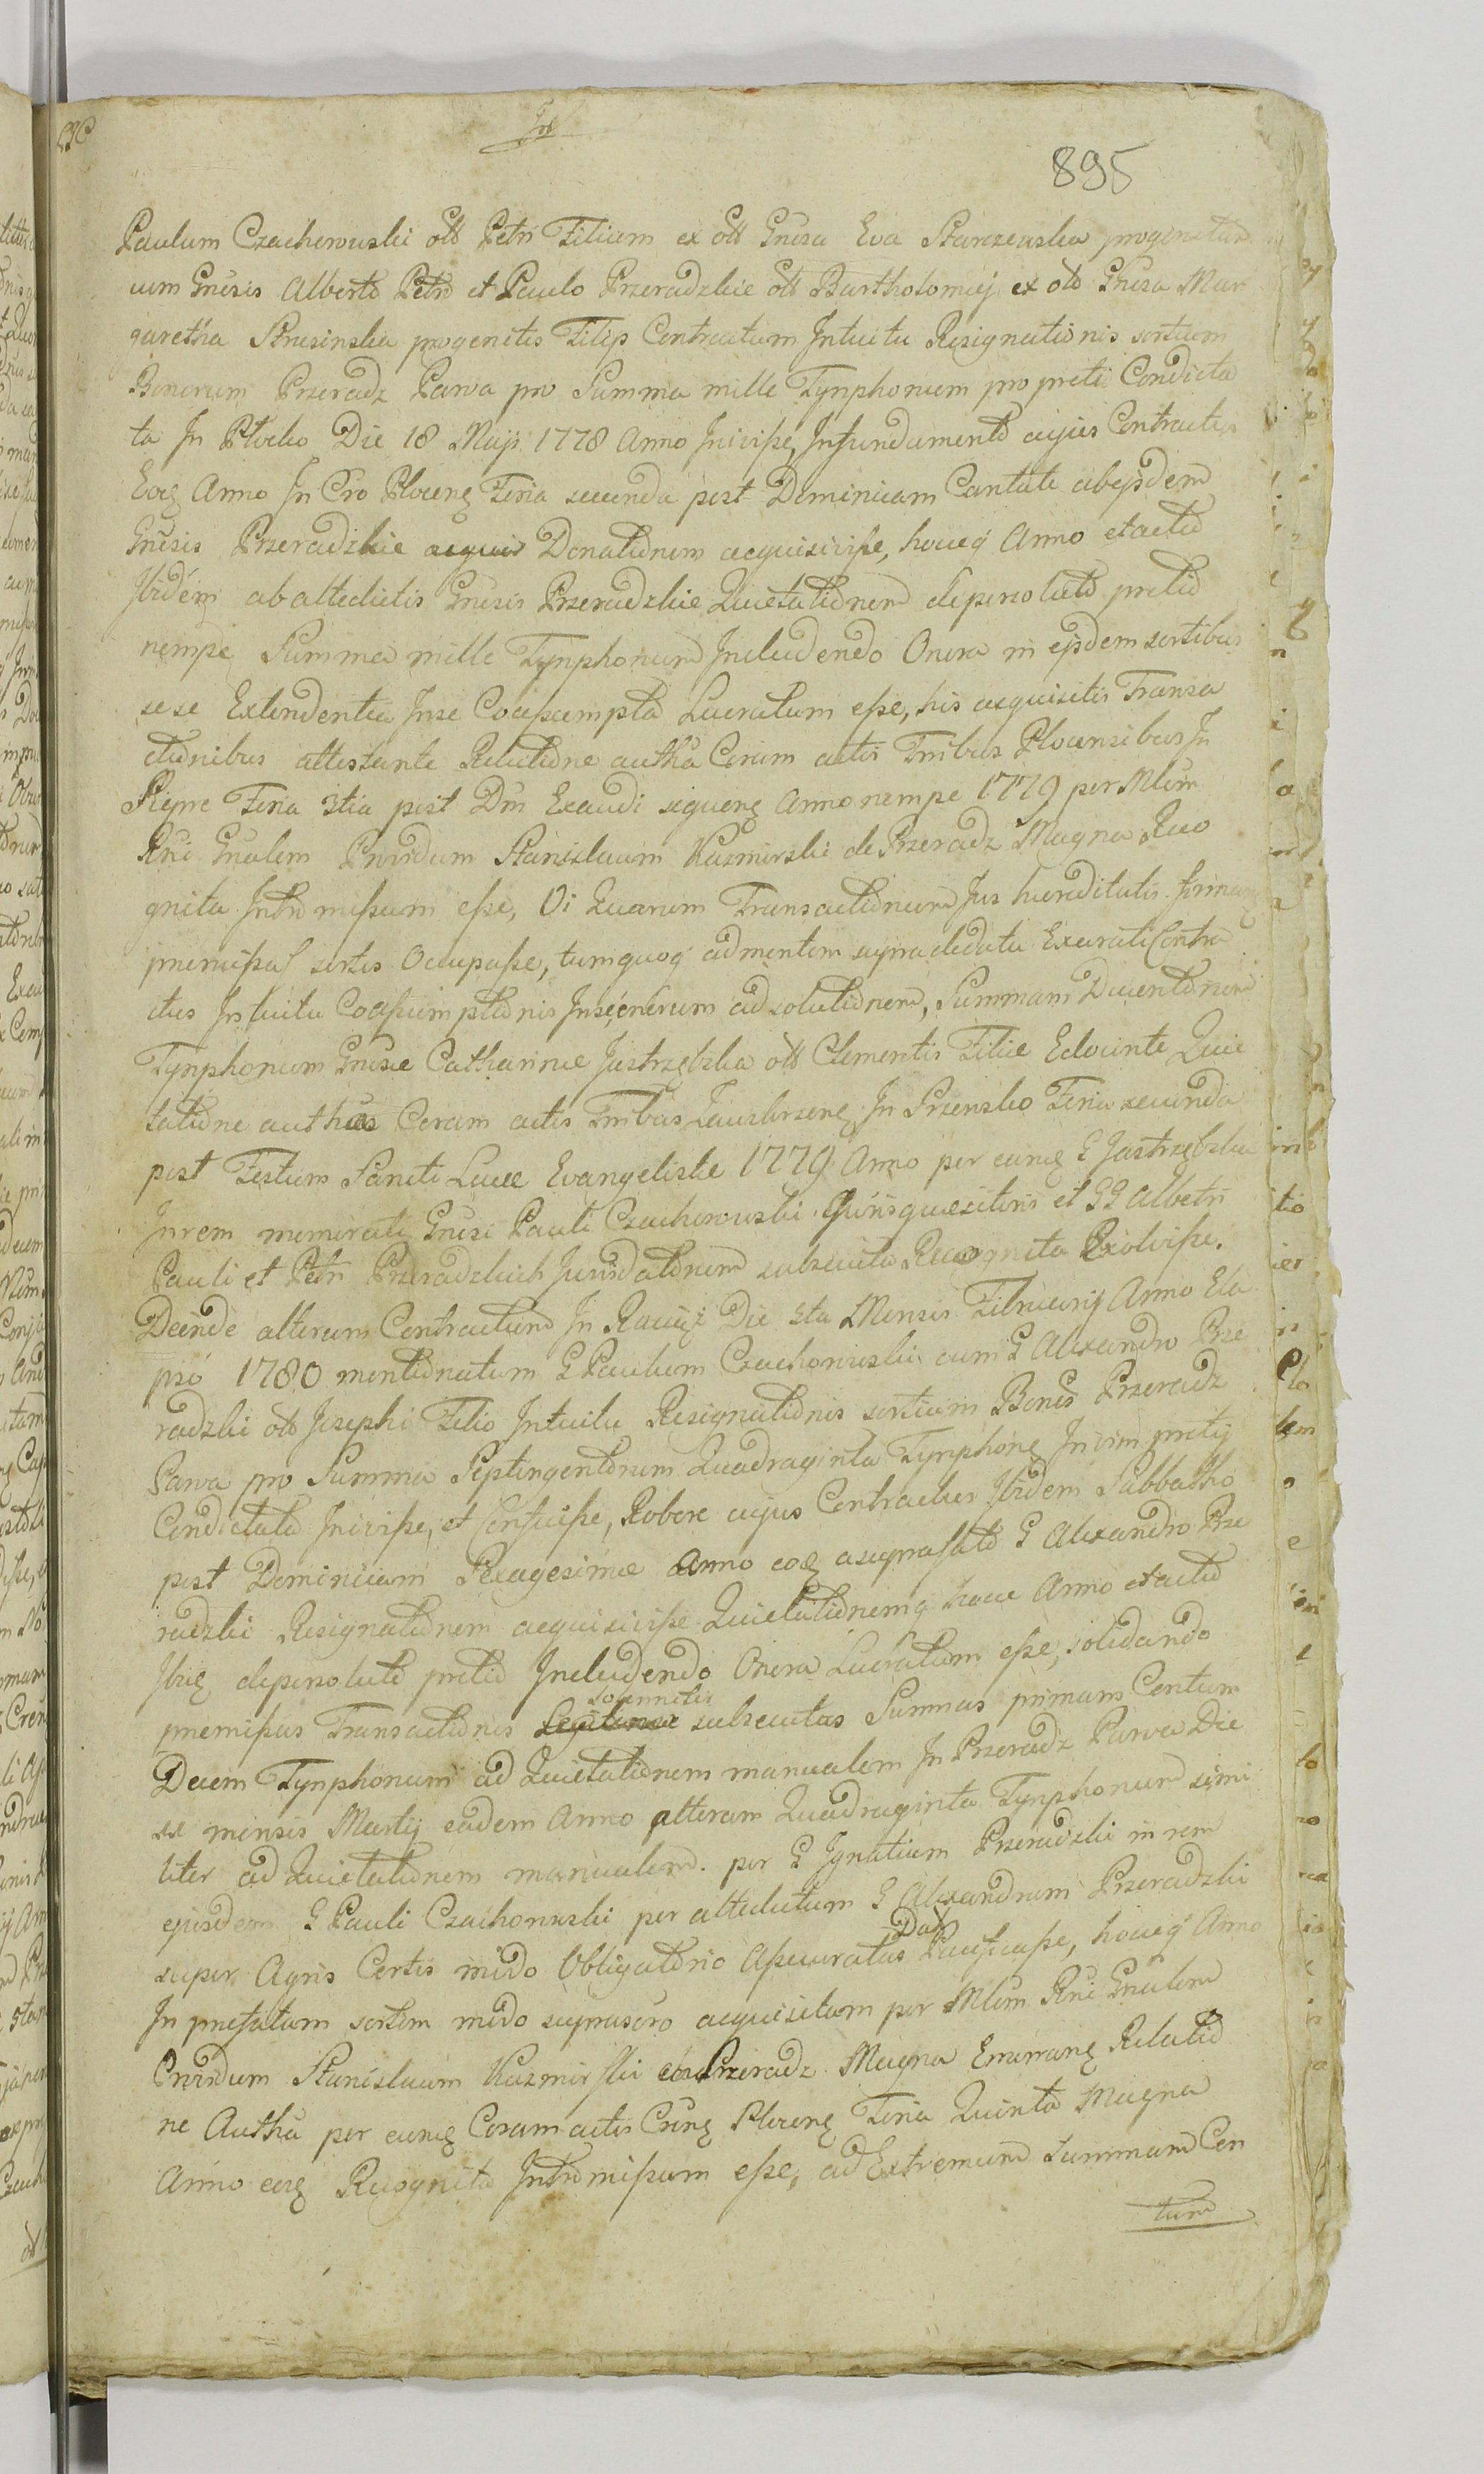 895
Paulum Czachowski olb Petri Filium ex olb Gnosa Eva Starczewska progenitum
cum Gnosis Alberto Petro et Paulo Przeradzkie olb Bartholomej ex olb Gnosa Mar
garetha Strusinska progenitis Filijs Contractum Intuitu Resignationis sortium
Bonorum Przeradz Parva pro Summa mille Tynphonum pro pretio Condicta
ta In Plocko Die 18 Maji 1778 Anno Inivisse, Infundamento cujus Contractus
Eoq Anno In Cro Plocenq Feria secunda post Dominicam Cantate ab ejsdem
Gnosis Przeradzkie Donationem acquisivisse, hocceq Anno et actu
Ibidem ab attedictis Gnosis Przeradzkie Quietationem de persoluto pretio
nempe Summa mille Tynphonum Includendo Onera in ejsdem sortibus
sese Extendentia Inse Coassumpta Lucratum esse, his acquisitis Transa
ctionibus attestante Relatione autha Coram actis Tribus Plocensibus In
Sierpc Feria 3tia post Dni Exaudi sequenq Anno nempe 1779 per Mlem
Rni Gnalem Providum Stanislaum Kazmirski de Przeradz Magna Reco
gnita Intro missum esse, Vi Quarum Transactionum Jus haereditatis firmanq
praemissas sortes Occupasse, tumquoq ad mentem supradedatu Exarati Contra
ctus Intuitu Coassumptionis Inse onerum ad solutionem, Summam Ducentorum
Tynphonum Gnosae Catharinae Jastrzębska olb Clementis Filiae Edocente Quie
tatione authca Coram actis Tribus Zawskrzenq In Szrensko Feria secunda
post Festum Sancti Lucae Evangelistae 1779 Anno per eanq G Jastrzębska
In rem memorati Gnosi Pauli Czachowski Juris quaesitoris et GG Albetri
Pauli et Petri Przeradzkich Juris datorum subsecuta Recognita Exolvisse.
Deinde alterum Contractum In Raciąż Die 5ta Mensis Februarij Anno Ela
pso 1780 mentionatum G Paulum Czachowski cum G Alexandro Prze
radzki olb Josephi Filio Intuitu Resignationis sortium Bonor Przeradz
Parva pro Summa Septingentorum Quadraginta Tynphonq In vim pretij
Condictata Inivisse, et Censuisse, Robore cujus Contractus Ibidem Sabbatho
post Dominicam Sexagesimae Anno eoq a suprafato G Alexandro Prze
radzki Resignationem acquisivisse Quietationemq hocce Anno et actu
Ibiq de persoluto pretio Includendo Onera Lucratum esse, solidando
praemissas Transactiones solenniter subsecutas Summas primam Centum
Decem Tynphonum ad Quietationem manualem In Przeradz Parva Die
xx mensis Martij eodem Anno alteram Quadraginta Tynphonum simi
liter ad Quietationem manualem. per G Ignatium Przeradzki in rem
ejusdem G Pauli Czachowski per attedictum G Alexandrum Przeradzki
super Agris Certis modo Obligatorio Assecuratas Dato Pacificasse, hocceq Anno
In praefatam sortem modo suprascro acquisitam per Mlem Rni Gnalem
Providum Stanislaum Kazmirski de Przeradz Magna Emananq Relatio
ne Autha per eunq Coram actis Crenq Plocenq Feria Quinta Magna
Anno eoq Recognita Intromissum esse, ad Extremum Summam Cen
tum